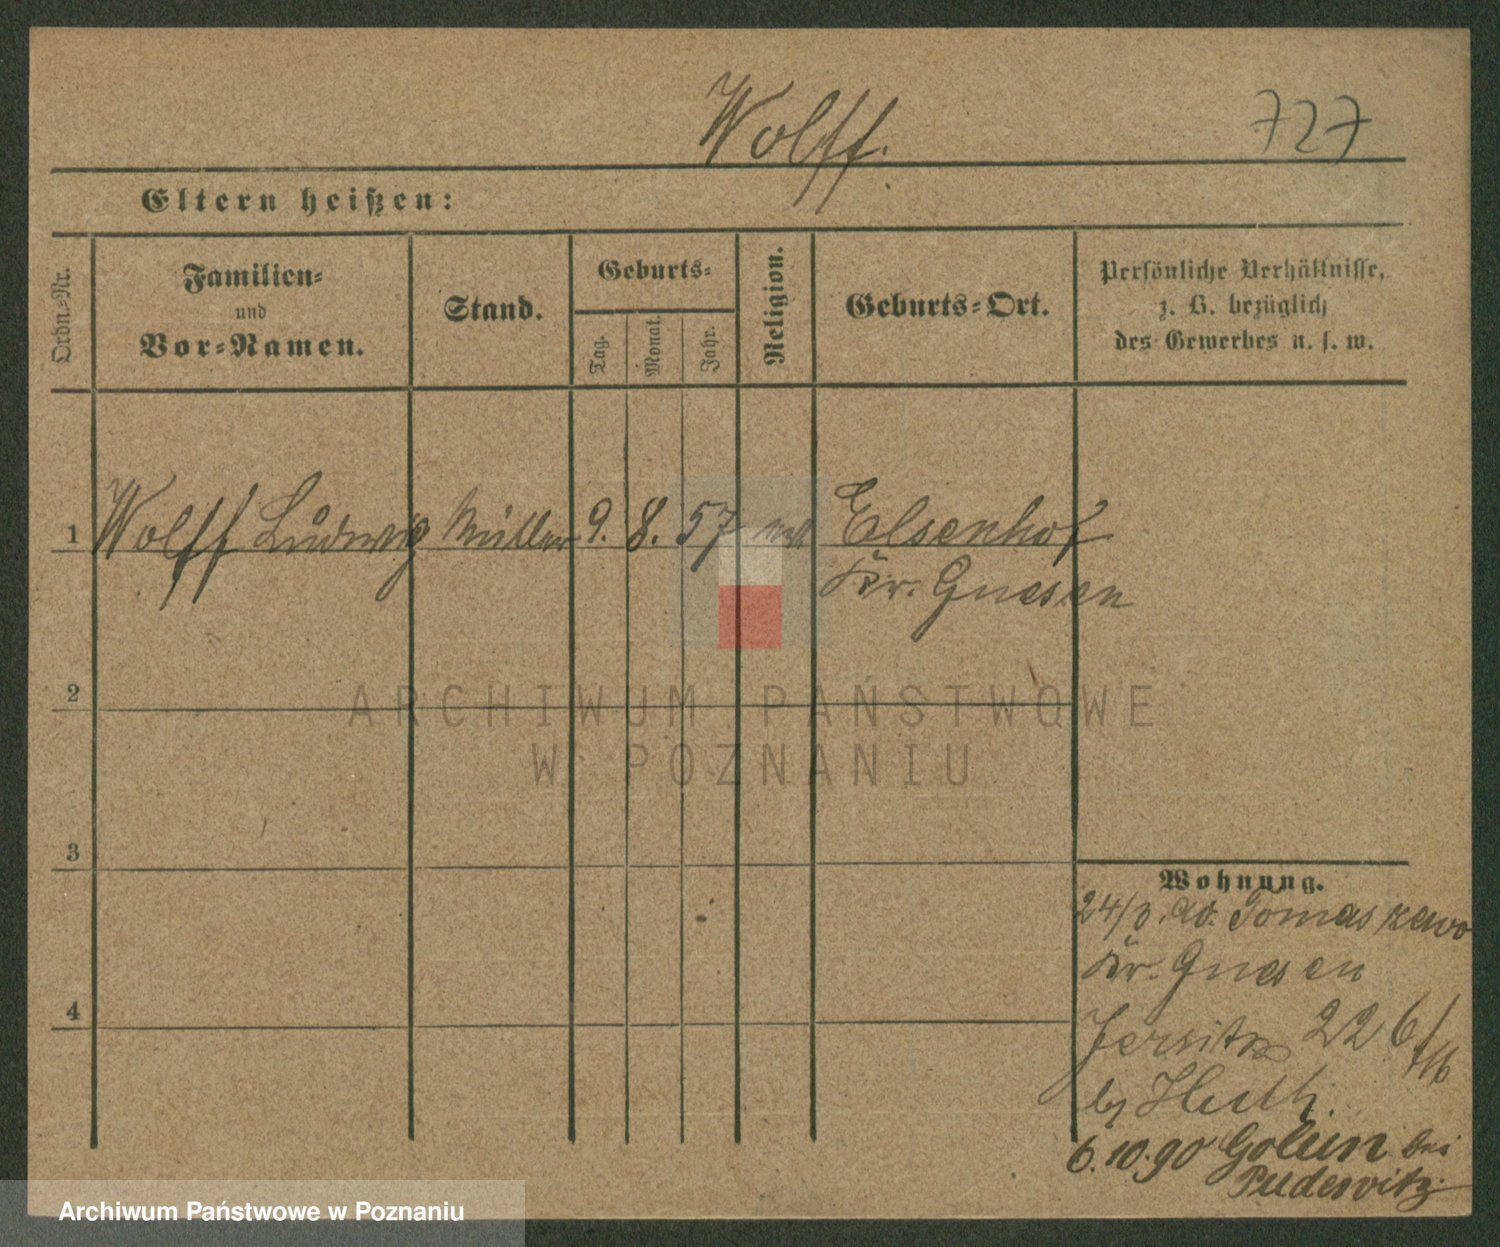 Wolff.
727
Eltern heißen:
Ordn.-Nr.
Familien-
und
Vor-Namen.
Stand.
Geburts-
Tag.
Monat.
Jahr.
Religion.
Geburts-Ort.
Persönliche Verhältnisse,
z. B. bezüglich
des Gewerbes u. s. w.
1 Wolff Ludwig Müller 9. 8. 57 Elsenhof
Kr. Gnesen
2
3
4
Wohnung.
24/3. Tomaszewo
Kr. Gnesen
Jersitz 22 6/
by
6.10.90 Golun bei
Pudewitz
ARCHIWUM PAŃSTWOWE
W POZNANIU
Archiwum Państwowe w Poznaniu